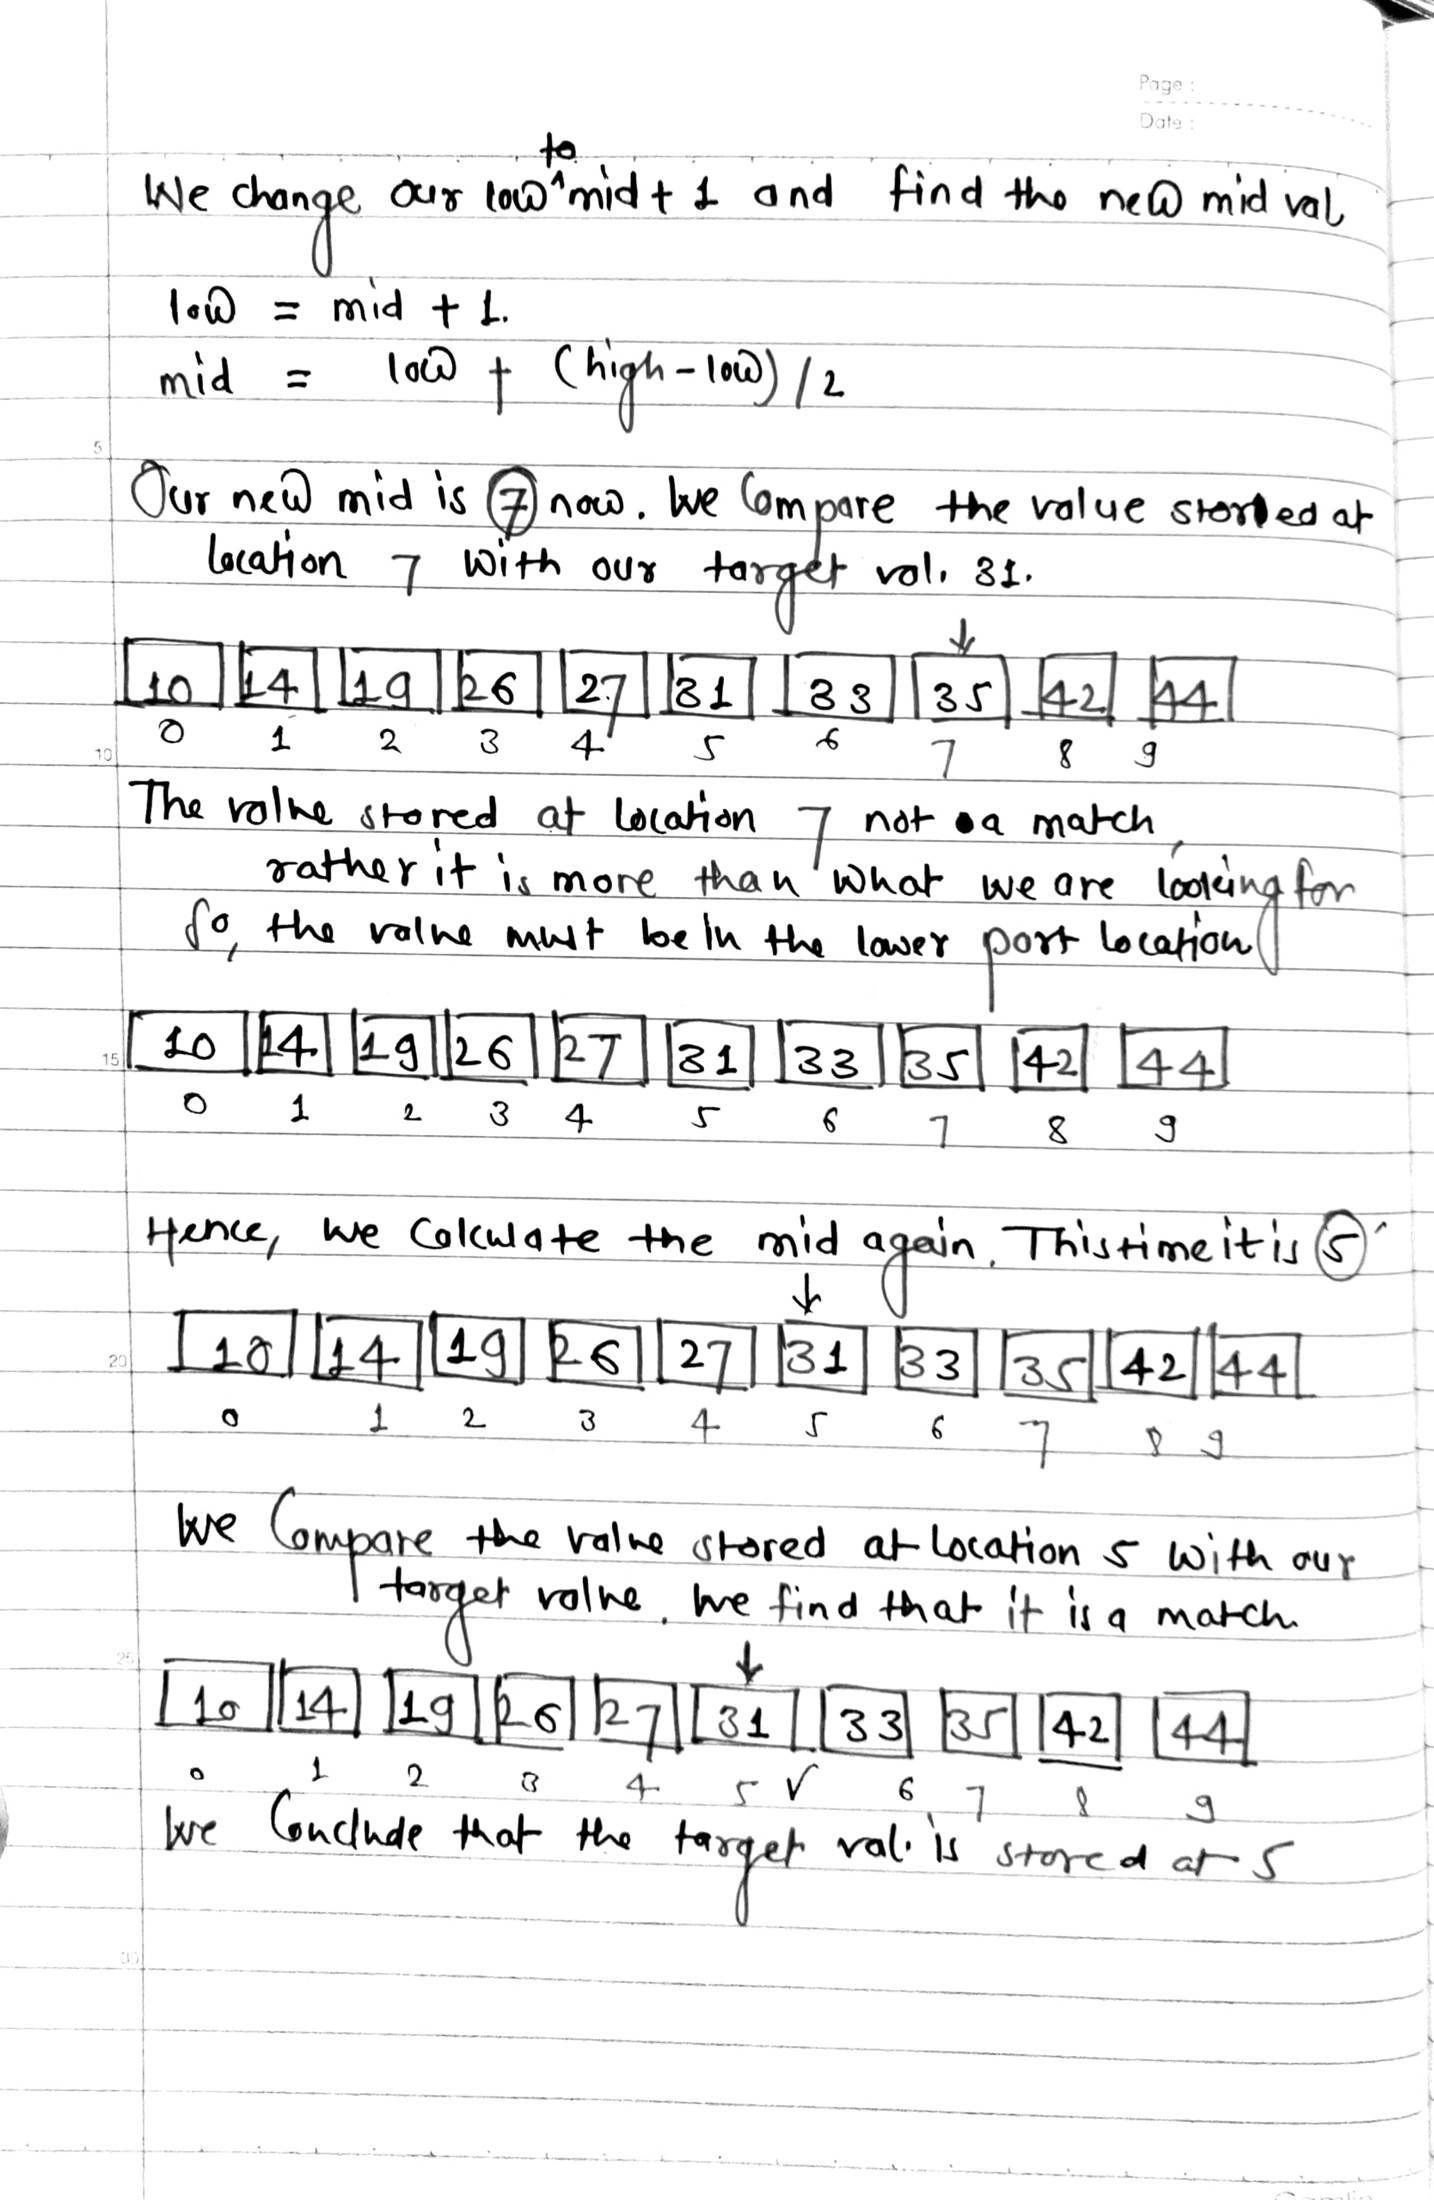 Page :
Date :
to
We change our low^mid + 1 and find the new mid val
low = mid + 1.
mid = low + (high - low) / 2
5
Our new mid is 7 now. We Compare the value stored at
location 7 with our target val. 31.
10 14 19 26 27 31 33 35 42 44
0 1 2 3 4 5 6 7 8 9
10
The value stored at location 7 not a match,
rather it is more than what we are looking for
So, the value must be in the lower part location
10 14 19 26 27 31 33 35 42 44
15
0 1 2 3 4 5 6 7 8 9
Hence, we Calculate the mid again. This time it is 5
10 14 19 26 27 31 33 35 42 44
20
0 1 2 3 4 5 6 7 8 9
We Compare the value stored at location 5 with our
target value. We find that it is a match.
25
10 14 19 26 27 31 33 35 42 44
0 1 2 3 4 5 ✓ 6 7 8 9
We Conclude that the target val. is stored at 5
30